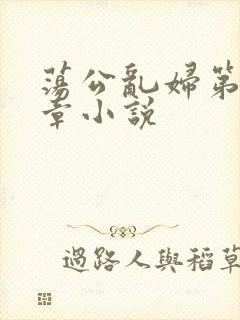 蕩公亂婦第
章小説
過路人與稻草